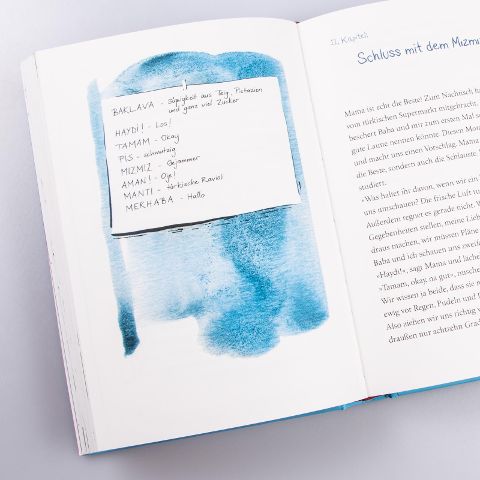 BAKLAVA - Süßigkeit aus Teig, Pistazien
und ganz viel Zucker
HAYDİ! - Los!
TAMAM - Okay
PİS - schmutzig
MIZMIZ - Gejammer
AMAN! - Oje!
MANTI - türkische Ravioli
MERHABA - Hallo
11. Kapitel
Schluss mit dem Mızmı
Mama ist die Beste! Zum Nachtisch h
vom türkischen Supermarkt mitgebracht.
beschert Baba und mir zum ersten Mal s
gute Laune nennen könnte. Diesen Mom
und macht uns einen Vorschlag. Mama
die Beste, sondern auch die Schlauste.
studiert.
»Was haltet ihr davon, wenn wir ein
uns umschauen? Die frische Luft tu
Außerdem regnet es gerade nicht. W
Gegebenheiten stellen, meine Lieb
draus machen, wir müssen Pläne
Baba und ich schauen uns zweife
»Haydi!«, sagt Mama und lache
»Tamam, okay, na gut«, nusche
Wir wissen ja beide, dass sie r
ewig vor Regen, Pudeln und F
Also ziehen wir uns richtig v
draußen nur achtzehn Grad